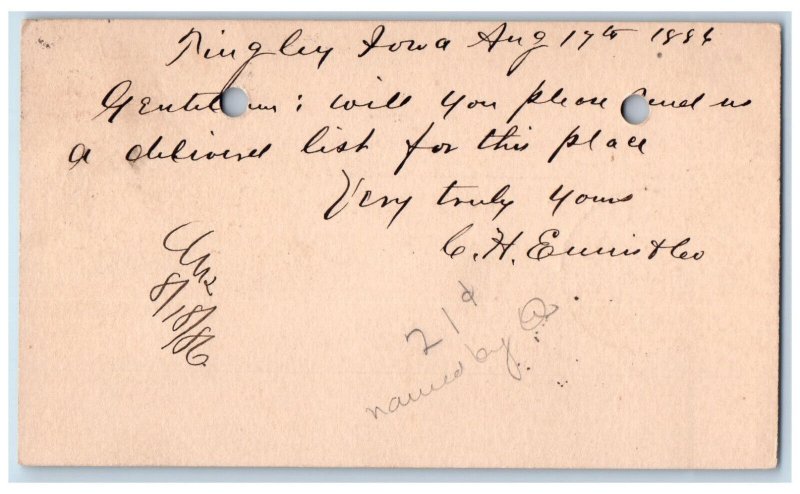 Kingley Iowa Aug 17th 1886
Gentlemen: will you please send us
a delivered list for this place
Very truly yours
C. H. Ennis & Co
Ans
8/18/86
21d
named by